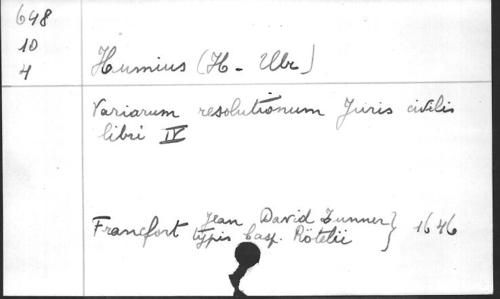 648
10
4
Humius (H - Ulr)
Variarum resolutionum Juris civilis
libri IV
Jean David Zunner
Francfort typis Casp. Rötelii } 1646